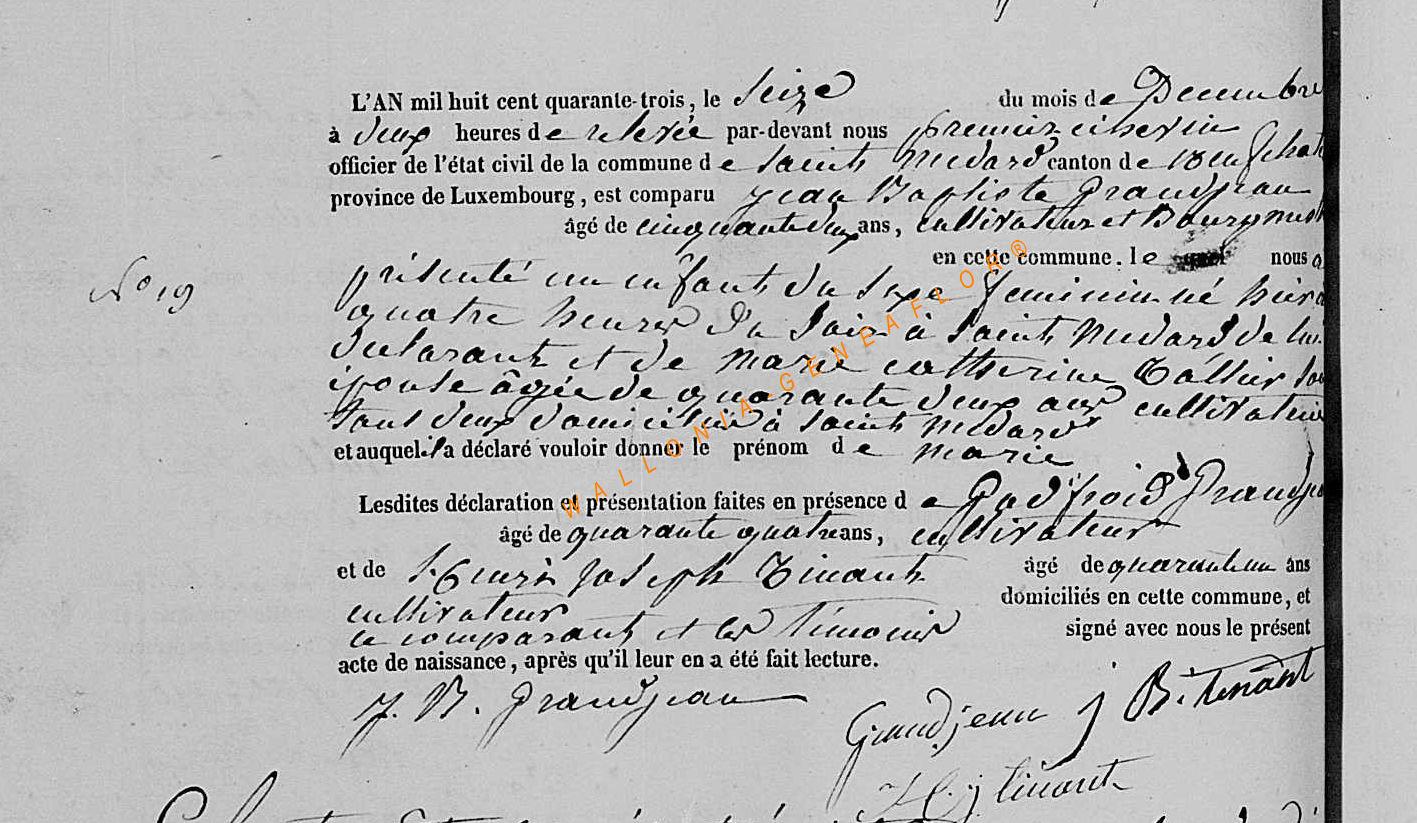 L'AN mil huit cent quarante-trois, le Seize du mois de Decembre
à deux heures de relevée par-devant nous premier échevin
officier de l'état civil de la commune de Saint Medard canton de neufchat
province de Luxembourg, est comparu Jean Baptiste Grandjean
âgé de cinquante deux ans, cultivateur et Bourgmest
en cette commune. le quel nous a
N° 19
présenté un enfant du Sexe feminin né hier a
quatre heures du Soir à Saint Medard de lui
declarant et de marie catherine
épouse âgée de quarante deux ans cultivateurs
tous deux domiciliés à Saint Medard
et auquel il a déclaré vouloir donner le prénom de marie
Lesdites déclaration et présentation faites en présence de Godfroid Grandje
âgé de quarante quatre ans, cultivateur
et de Henri Joseph Tinant âgé de quarante un ans
cultivateur domiciliés en cette commune, et
le comparant et les témoins signé avec nous le présent
acte de naissance, après qu'il leur en a été fait lecture.
J. B. Grandjean
Grandjean j B. tinant
H. j tinant
WALLONIA GENEAFLOR®